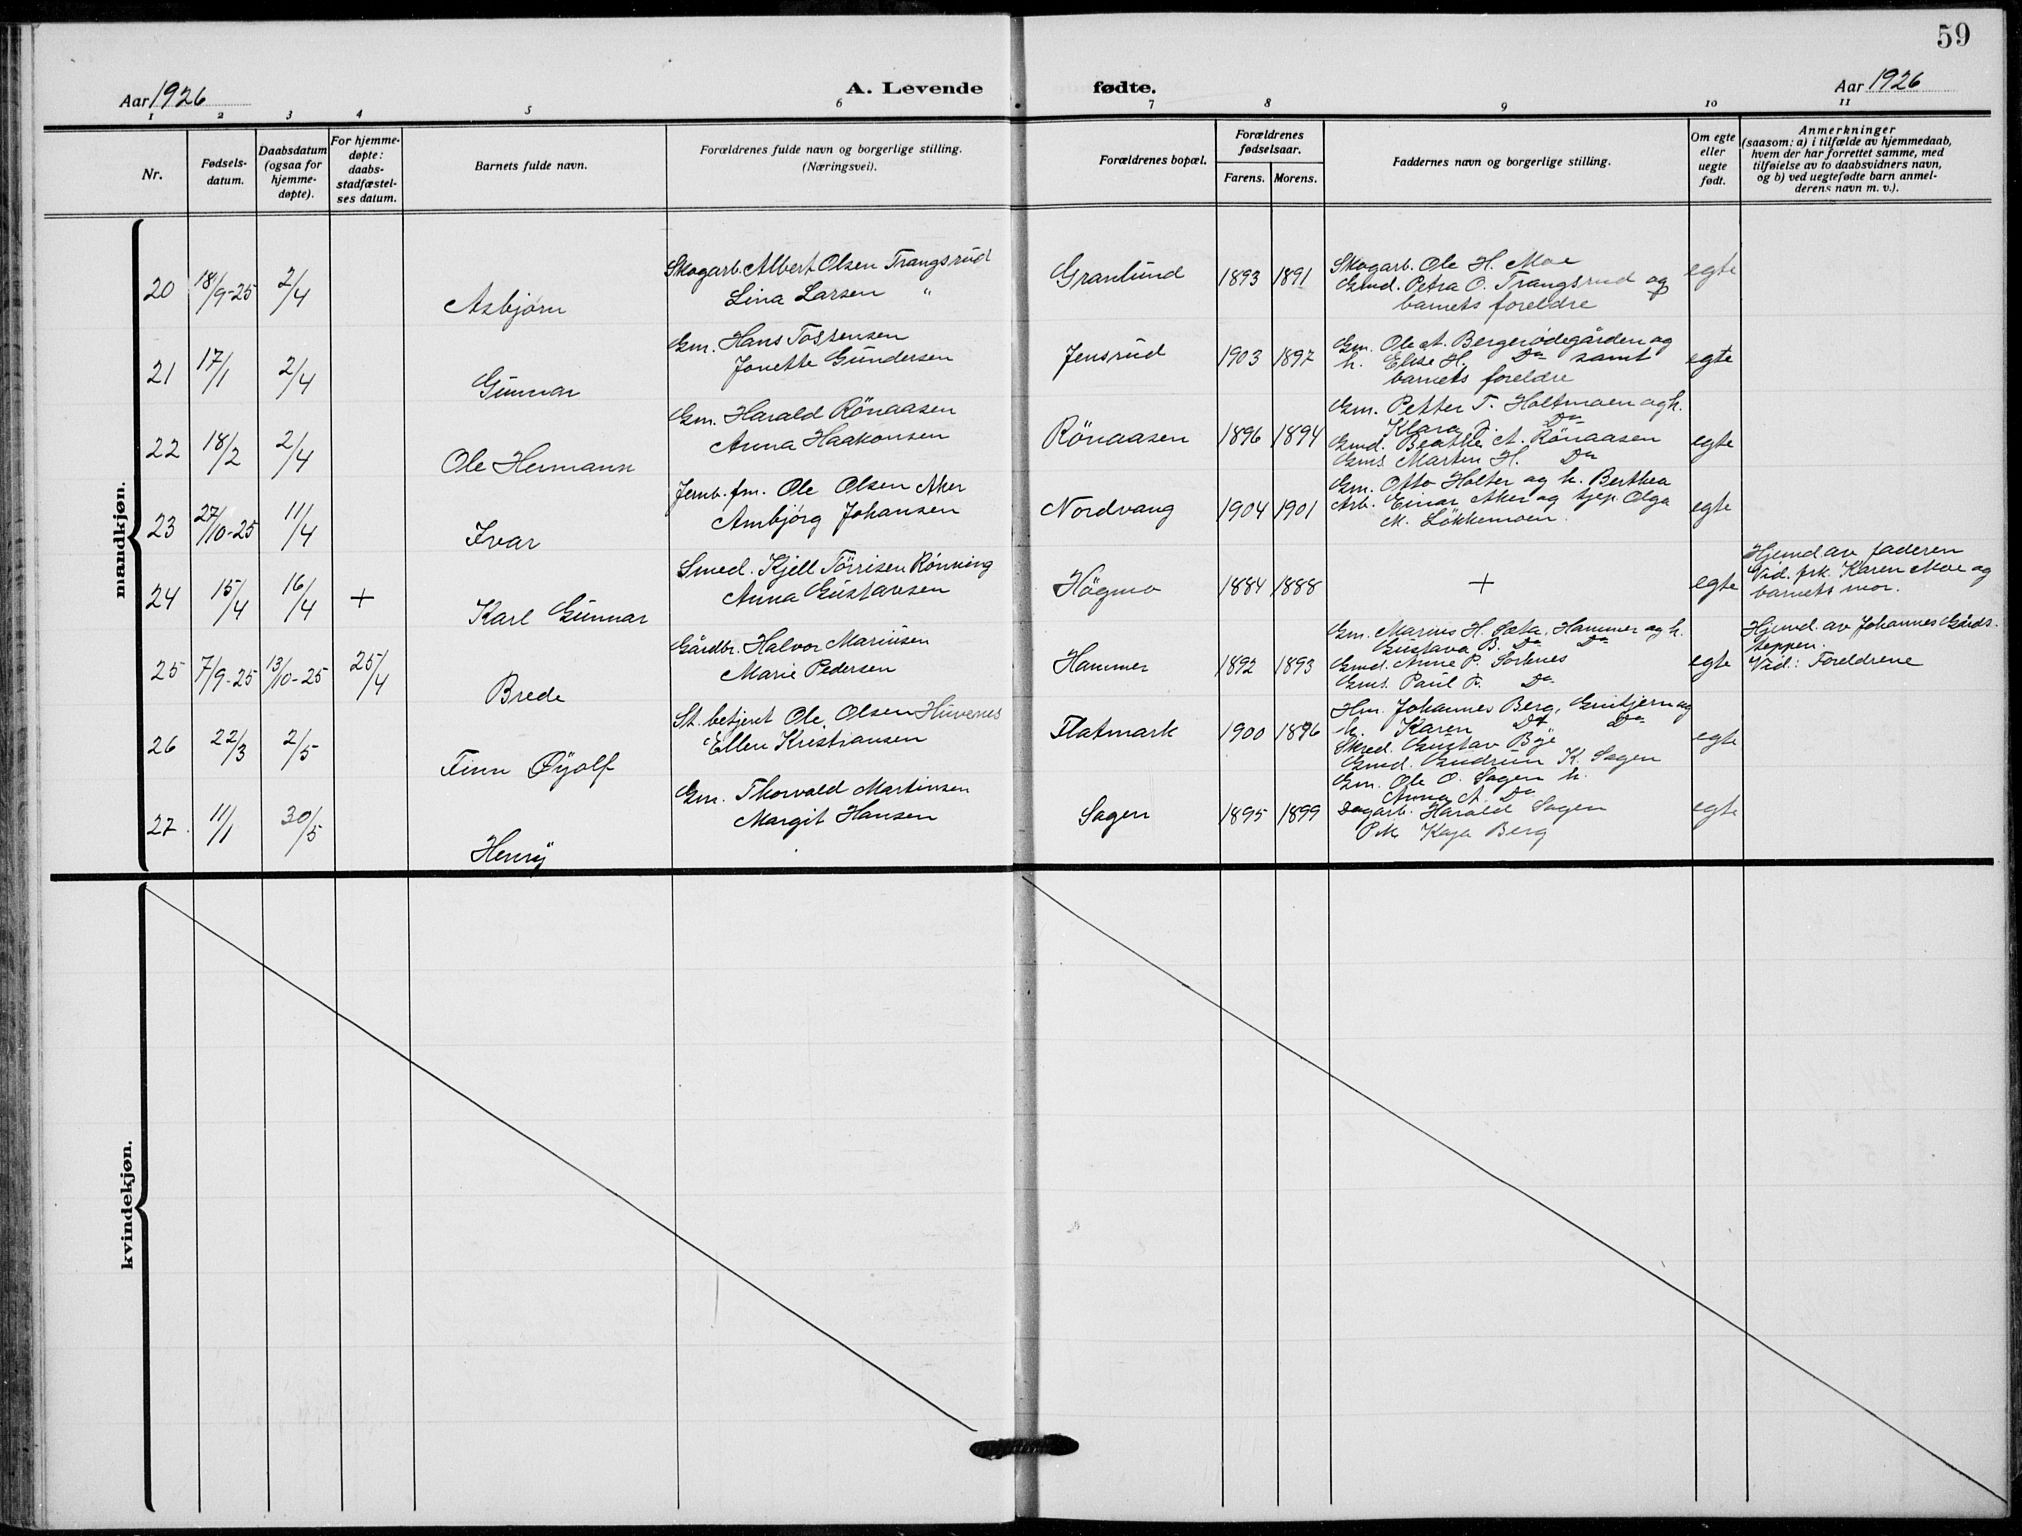 59
Aar 1926
A. Levende fødte.
Aar 1926
1 2 3 4 5 6 7 8 9 10 11
Nr.
Fødsels-
datum.
Daabsdatum
(ogsaa for
hjemme-
døpte).
For hjemme-
døpte:
daabs-
stadfæstel-
ses datum.
Barnets fulde navn.
Forældrenes fulde navn og borgerlige stilling.
(Næringsvei).
Forældrenes bopæl.
Forældrenes
fødselsaar.
Farens. Morens.
Faddernes navn og borgerlige stilling.
Om egte
eller
uegte
født.
Anmerkninger
(saasom: a) i tilfælde av hjemmedaab,
hvem der har forrettet samme, med
tilføielse av to daabsvidners navn,
og b) ved uegtefødte barn anmel-
derens navn m. v.).
mandkjøn.
20 18/9-25 2/4 Asbjørn
Skogarb. Albert Olsen Trangsrud
Lina Larsen "
Granlund 1893 1891
Skogarb. Ole H. Moe
Gmd. Petra O. Trangsrud og
barnets foreldre
egte
21 17/1 2/4 Gunnar
Gm. Hans Tostensen
Jonette Gundersen
Jensrud 1903 1897
Gm. Ole A. Bergerødegården og
h. Elise H. Do samt
barnets foreldre
egte
22 18/2 2/4 Ole Hermann
Gm. Harald Rönaasen
Anna Haakonsen
Rönaasen 1896 1894
Gm. Petter T. Holtmoen og h.
Klara J. Do
Gmd. Beathe A. Rønaasen
Gms. Martin H. Do
egte
23 27/10-25 11/4 Ivar
Jernb. fm. Ole Olsen Aker
Ambjörg Johansen
Nordvang 1904 1901
Gm. Otto Holter og h. Berthea
Arb. Einar Aker og tjep. Olga
M. Løkkemoen.
egte
24 15/4 16/4 + Karl Gunnar
Smed. Kjell Törrisen Rönning
Anna Gustavsen
Högmo 1884 1888
+
egte
Hjemd. av faderen
Vid. frk. Karen Moe og
barnets mor.
25 7/9-25 13/10-25 25/4 Brede
Gårdbr. Halvor Mariusen
Marie Pedersen
Hammer 1892 1893
Gm. Marius H. Sæta, Hammer og h.
Gustava B. Do Do
Gmd. Anne P. Sorknes
Gms. Paul P. Do
egte
Hjemd. av Johannes Gårds-
teppen.
Vid: Foreldrene
26 22/3 2/5 Finn Øyolf
St. betjent Ole Olsen Huvenes
Ellen Kristiansen
Flatmark 1900 1896
Hm. Johannes Berg, Grutjern og
h. Karen Do Do
Skred. Gustav Bye
Gmd. Gudrun K. Sagen
egte
27. 11/1 30/5 Henry
Gm. Thorvald Martinsen
Margit Hansen
Sagen 1895 1899
Gm. Ole O. Sagen h.
Anna A. Do
Dagarb. Harald Sagen
Pik Kaja Berg
egte
kvindekjøn.